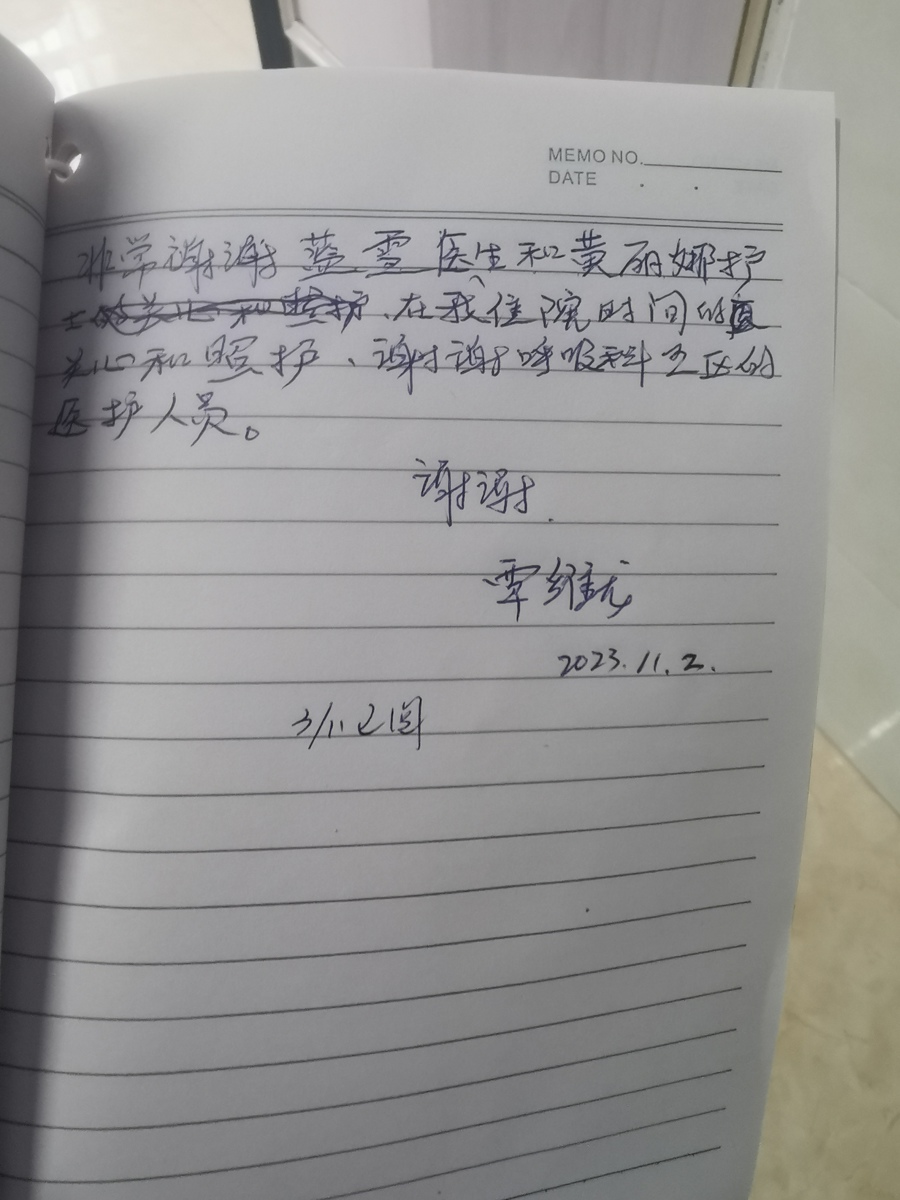 MEMO NO.
DATE . .
非常谢谢蓝雪医生和黄丽娜护
士的关心和照护、在我住院时间的
关心和照护、谢谢呼吸科五区的
医护人员。
谢谢.
覃维
2023.11.2.
3/11.已阅